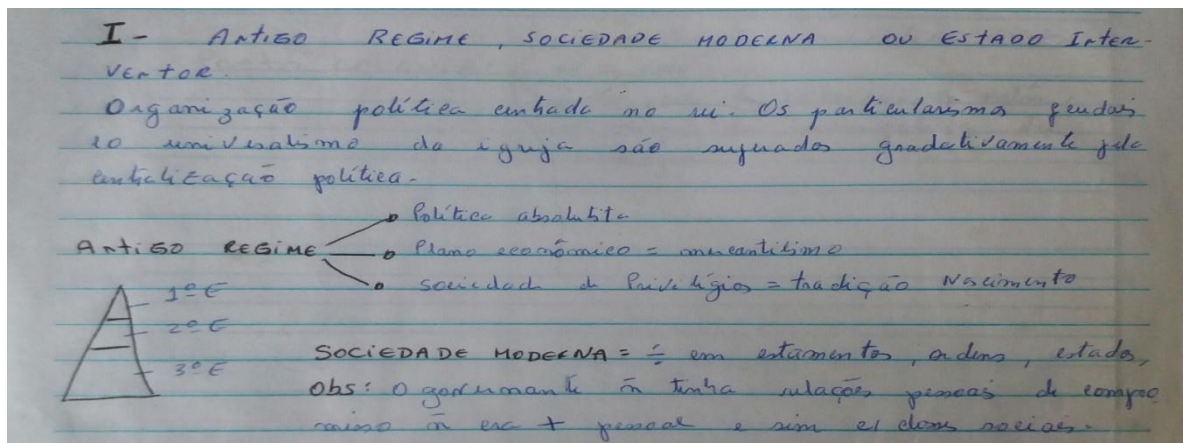 I - Antigo Regime, Sociedade Moderna ou Estado Inter-
ventor.
Organização política centrada no rei. Os particularismos feudais
e o universalismo da igreja são superados gradativamente pela
centralização política.
Política absolutista
Antigo Regime Plano econômico = mercantilismo
Sociedade de Privilégios = tradição Nascimento
1º E
2º E
3º E
Sociedade Moderna = ÷ em estamentos, ordens, estados,
Obs: O governante ñ tinha relações pessoais de compro
misso ñ era + pessoal e sim c/ sociais.